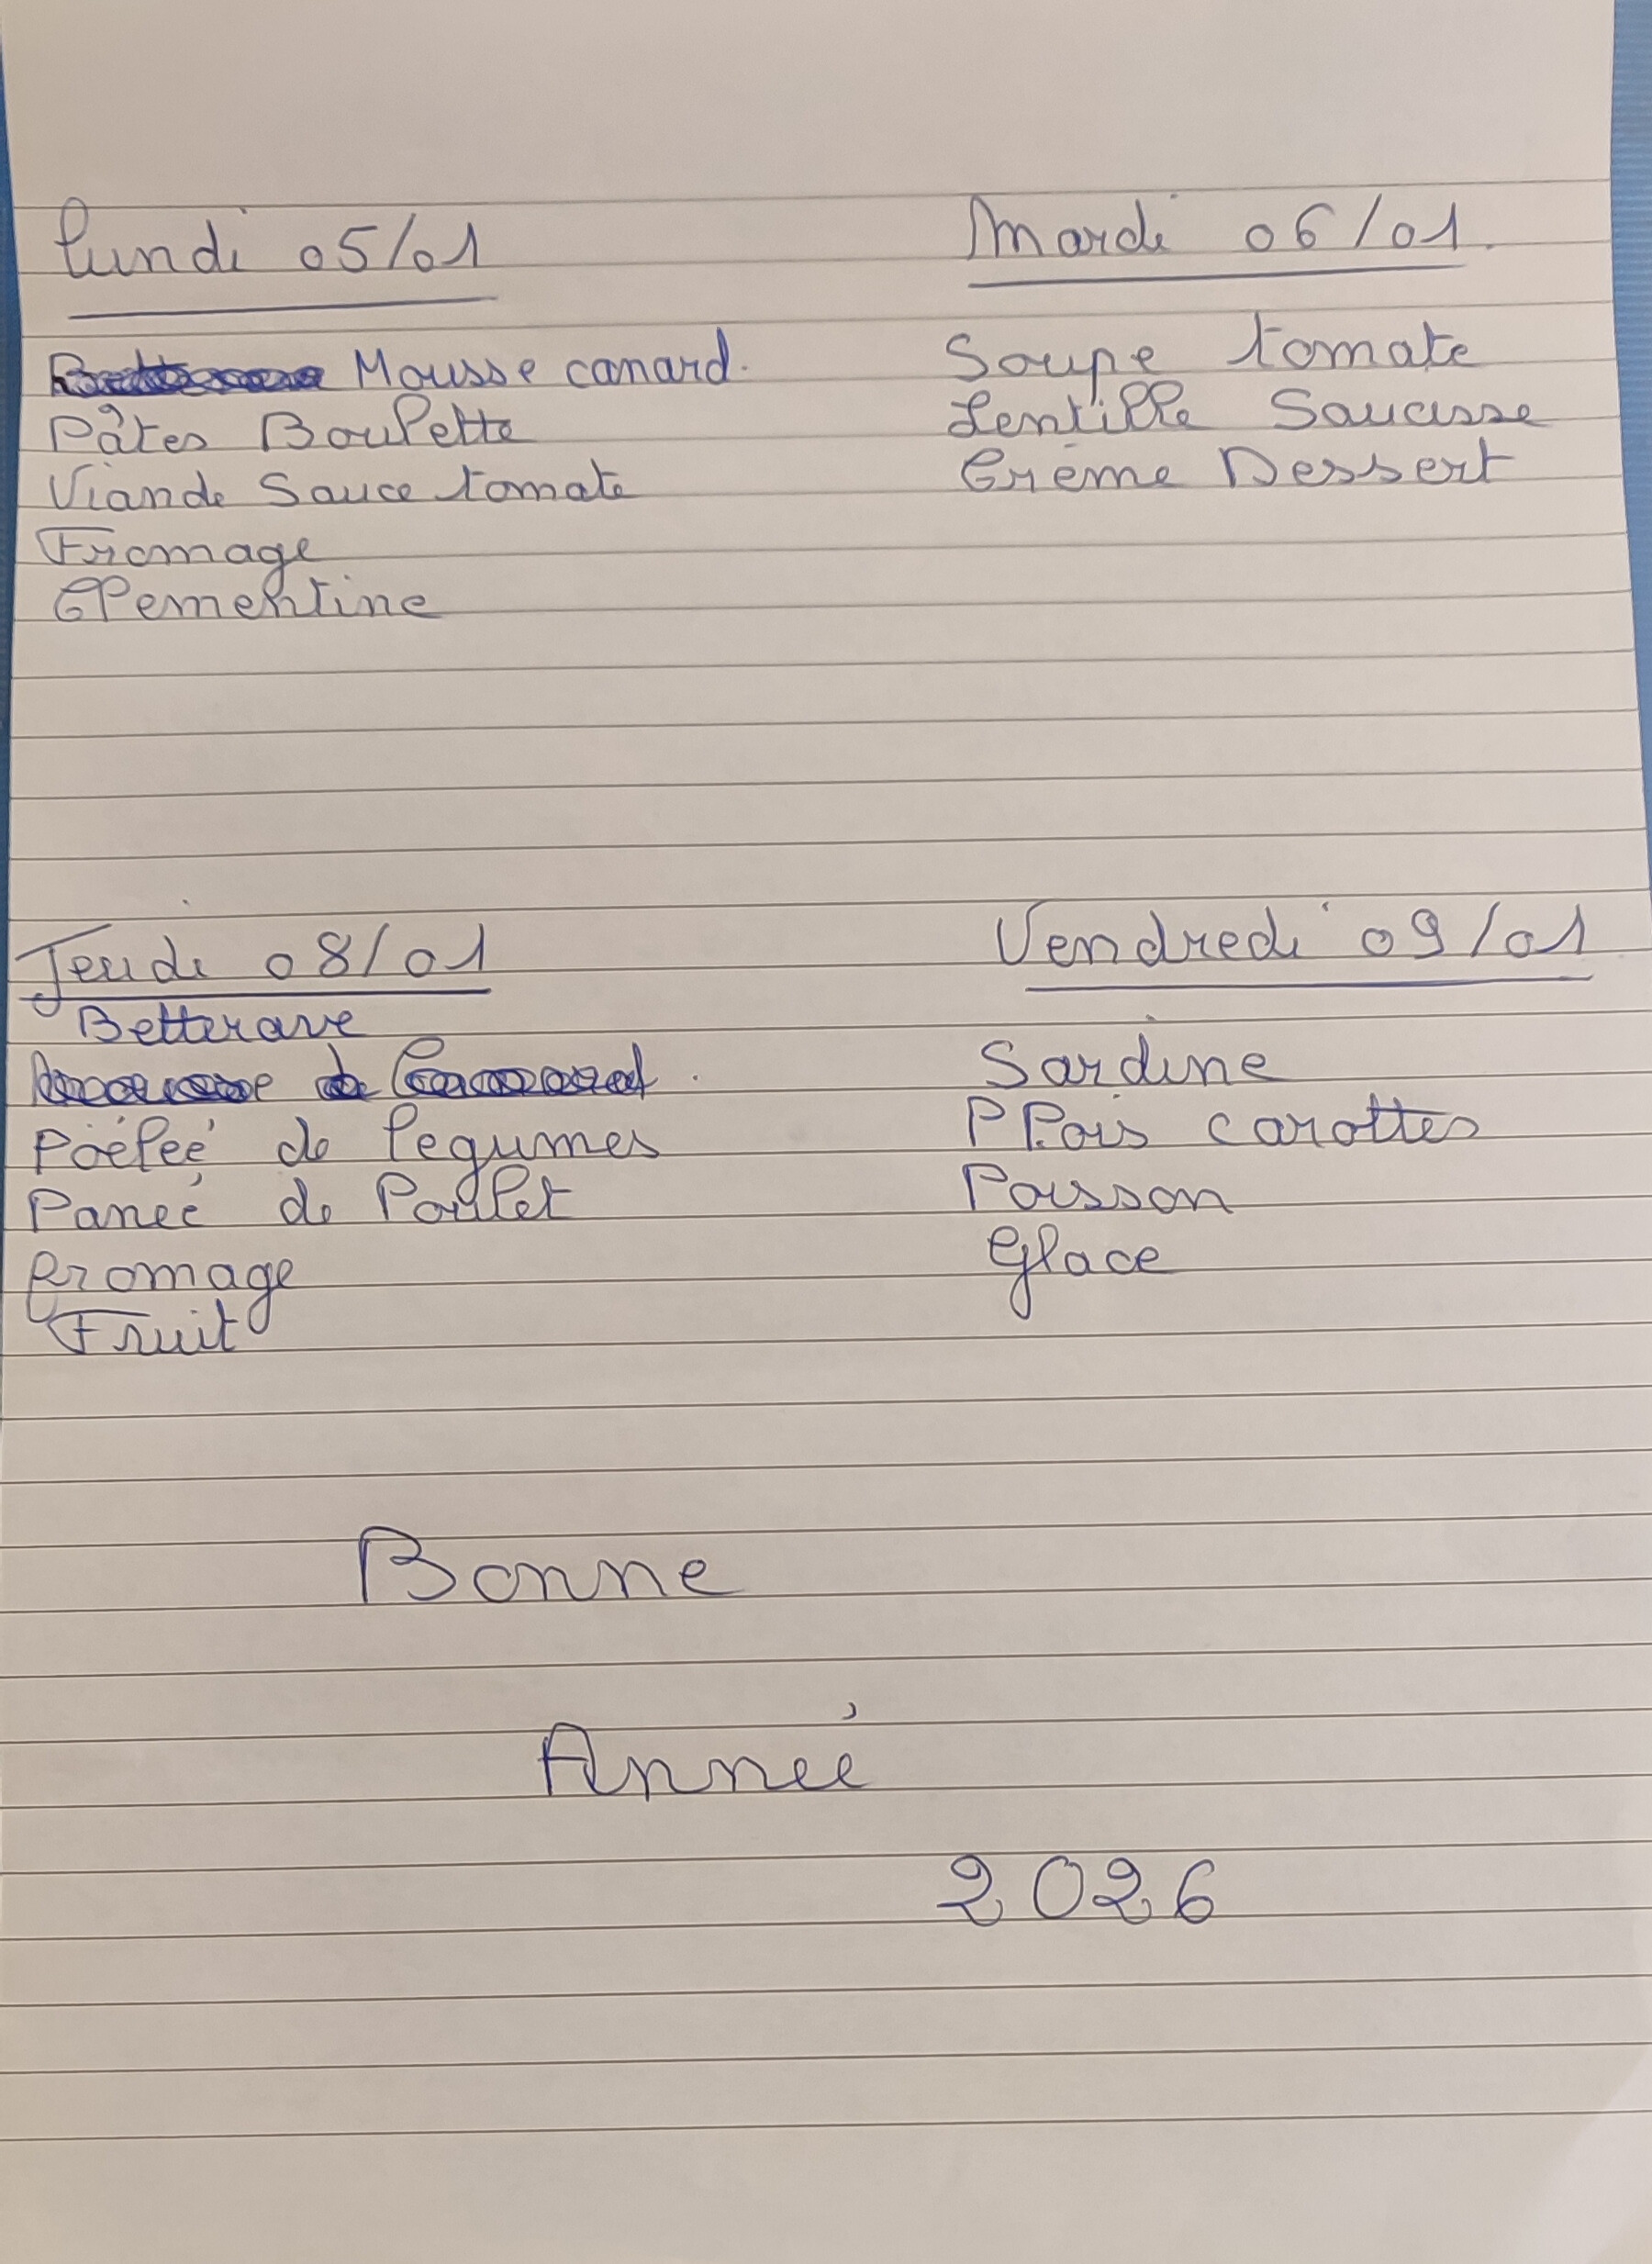 Lundi 05/01
Mousse canard.
Pâtes Boulette
Viande Sauce tomate
Fromage
Clementine
Mardi 06/01.
Soupe tomate
Lentille Saucisse
Crème Dessert
Jeudi 08/01
Betterave
Poêleé de legumes
Paneé de Poulet
fromage
Fruit
Vendredi 09/01
Sardine
P Pois carottes
Poisson
Glace
Bonne
Année
2026